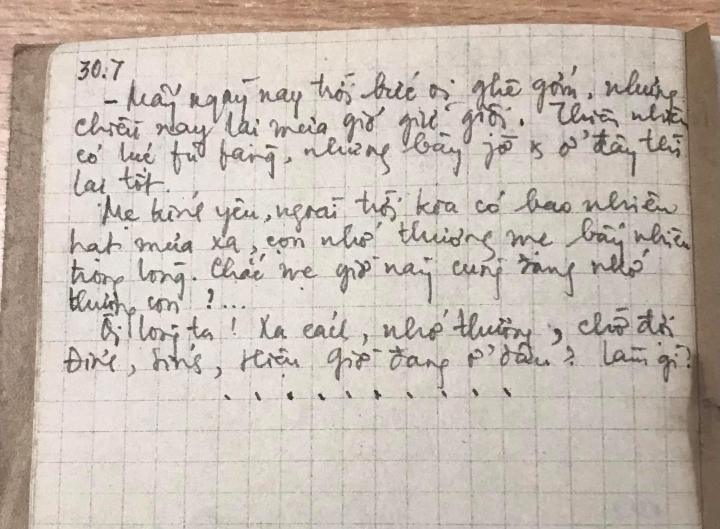 30.7
- Mấy ngày nay trời bức oi ghê gớm, nhưng
chiều nay lại mưa gió giật giội. Thiên nhiên
có lúc fũ fàng, nhưng bây jờ ở đây thì
lại tốt.
Mẹ kính yêu, ngoài trời kia có bao nhiêu
hạt mưa xa, con nhớ thương mẹ bấy nhiêu
trong lòng. Chắc mẹ giờ này cũng đang nhớ
thương con ?...
Ôi lòng ta ! Xa cách, nhớ thương, chờ đợi
Đính, Hiệu giờ đang ở đâu? Làm gì?
. . . . . . . . . .